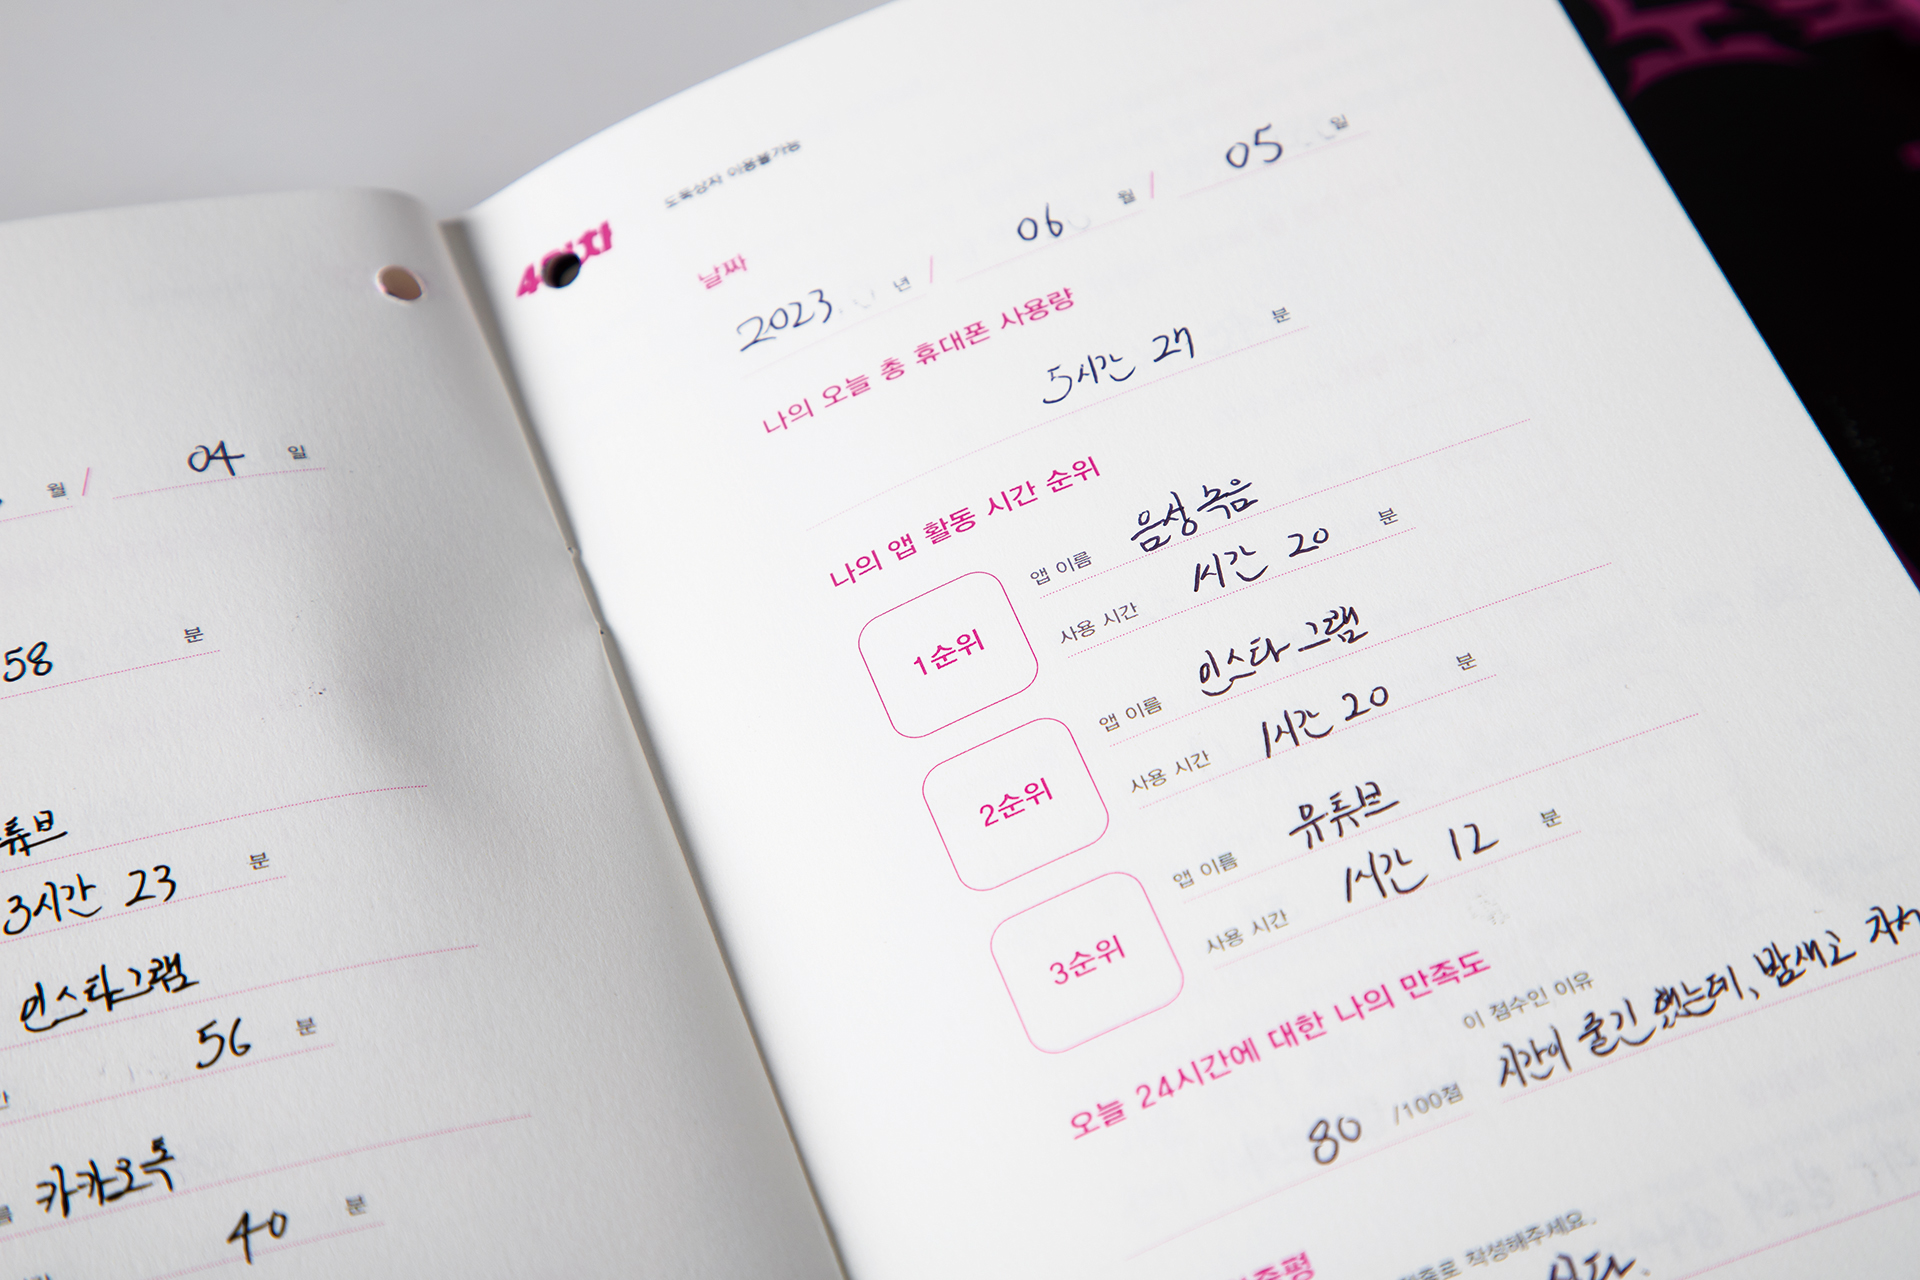 월 / 04 일
58 분
튜브
3시간 23 분
인스타그램
56 분
카카오톡
40 분
4일차
도둑상자 이용불가능
날짜
2023 년 / 06 월 / 05 일
나의 오늘 총 휴대폰 사용량
5시간 27 분
나의 앱 활동 시간 순위
1순위
앱 이름 음성 녹음
사용 시간 1시간 20 분
2순위
앱 이름 인스타그램
사용 시간 1시간 20 분
3순위
앱 이름 유튜브
사용 시간 1시간 12 분
오늘 24시간에 대한 나의 만족도
이 점수인 이유
80 /100점 시간이 줄긴 했는데, 밤새고 자서
작성해주세요.